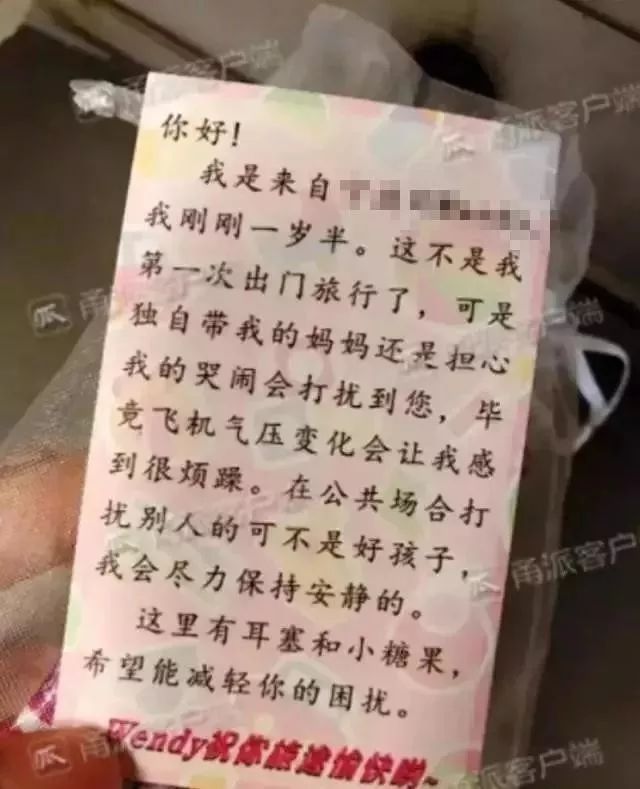 你好!
我是来自
我刚刚一岁半。这不是我
第一次出门旅行了，可是
独自带我的妈妈还是担心
我的哭闹会打扰到您，毕
竟飞机气压变化会让我感
到很烦躁。在公共场合打
扰别人的可不是好孩子，
我会尽力保持安静的。
这里有耳塞和小糖果，
希望能减轻你的困扰。
Wendy祝你旅途愉快哟~
甬派客户端
甬派客户端
甬派客户端
甬派客户端
甬派客户端
甬派客户端
甬派客户端